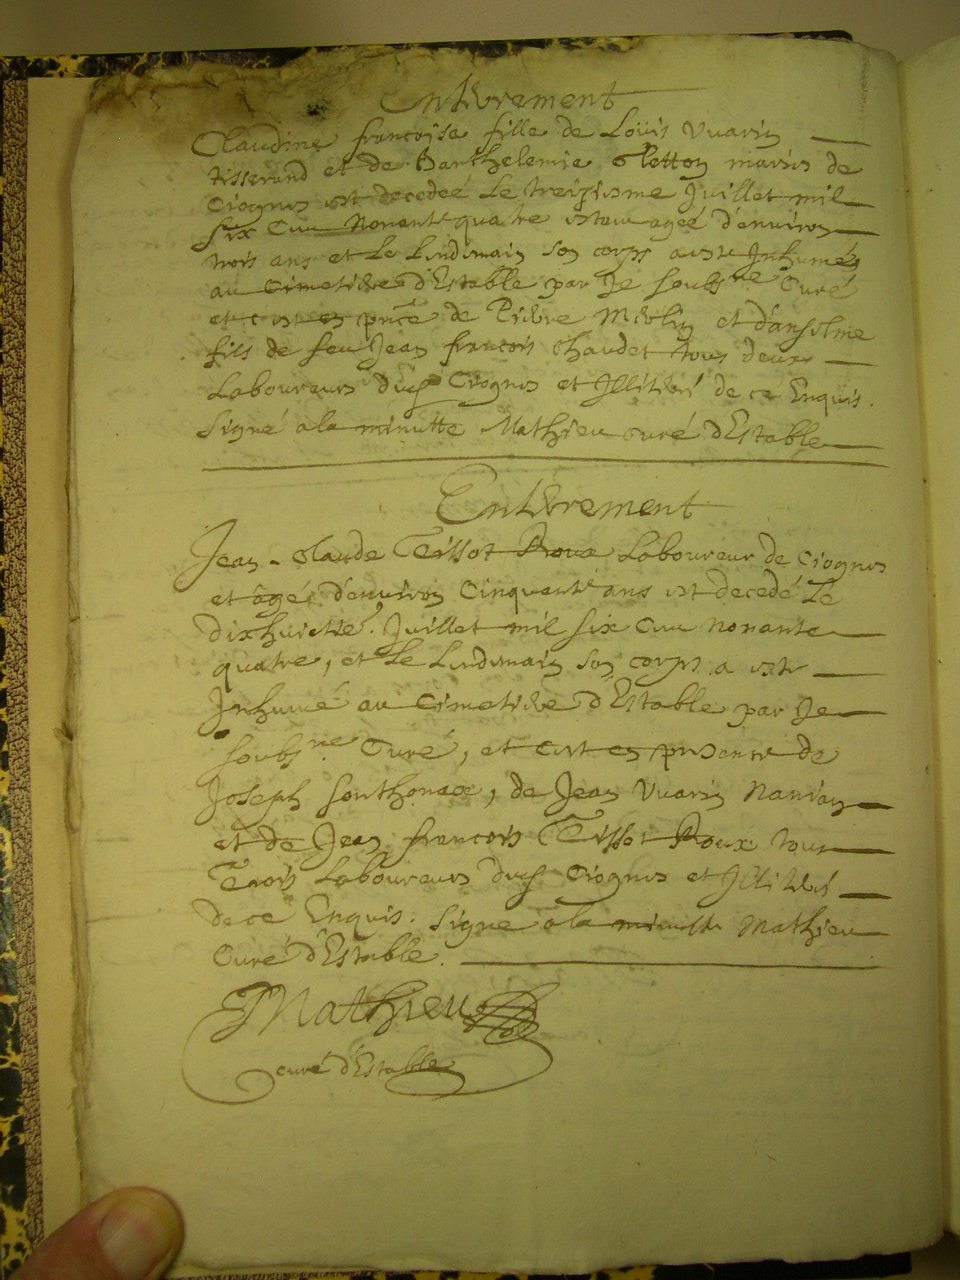 Enterrement
Claudine francoise fille de Loüis Vuarin
tisserand et de Barthelemie Cletton mariés de
Ciognes est decedeé Le treiziesme Juillet mil
six Cent Nonante quatre estant ageé d'environ
trois ans et Le Lendemain son corps a esté Inhumé
au Cimetiere d'Estable par Je soubs.né Curé
et c'est en pñce de Pierre Merlin et d'anselme
fils de feu Jean francois Chaudet tous deux
Laboureurs dud Ciognes et Illiteré de ce Enquis.
Signé a la minutte Mathieu curé d'Estable
Enterrement
Jean-Claude Teissot Roux Laboureur de Ciognes
et âgé d'environ Cinquante ans est decedé Le
dixhuictie. Juillet mil six Cent nonante
quatre, et Le Lendemain son corps a esté
Inhumé au Cimetiere d'Estable par Je
soubs.né Curé, et c'est en presence de
Joseph Sonthonaxe, de Jean Vuarin
et de Jean francois Teissot Roux tous
Trois Laboureurs dud Ciognes et Illiterés
de ce Enquis. Signé a la minutte Mathieu
Curé d'Estable.
Mathieu
curé d'Estable